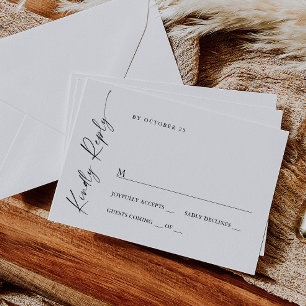 Kindly Reply
BY OCTOBER 25
M
JOYFULLY ACCEPTS __ SADLY DECLINES __
GUESTS COMING __ OF __